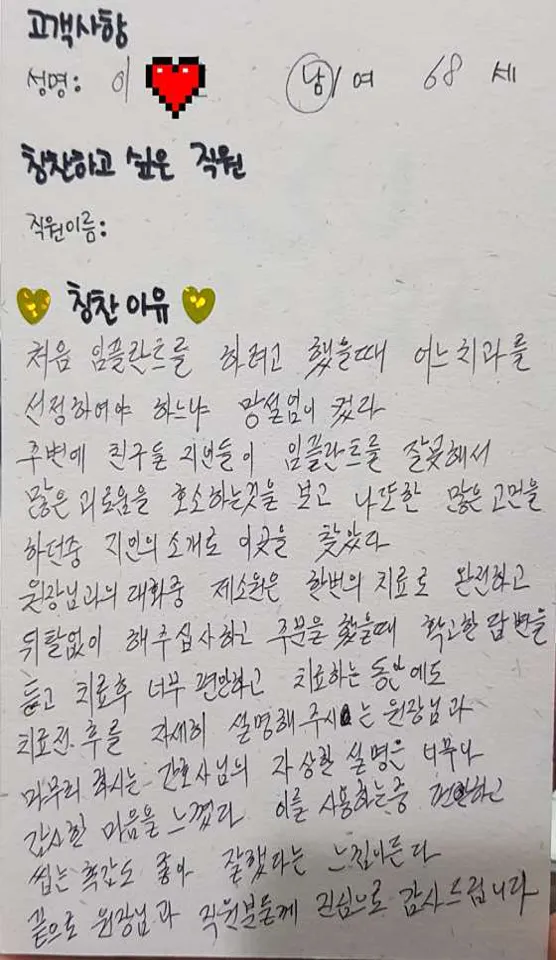 고객사항
성명: 이 남/여 68 세
칭찬하고 싶은 직원
직원이름:
칭찬 이유
처음 임플란트를 하려고 했을때 어느치과를
선정하여야 하느냐 망설업이 컸라
주변에 친구들 지인들이 임플란트를 잘못해서
많은 괴로움을 호소하는것을 보고 나또한 많은 고민을
하던중 지인의 소개로 이곳을 찾았다
원장님과의 대화중 제소원은 한번의 치료로 완전하고
뒤탈없이 해주십사하고 주문을 했을때 확고한 답변을
듣고 치료후 너무 편안하고 치료하는 동안에도
치료전.후를 자세히 설명해 주시는 원장님과
마무리 하시는 간호사님의 자상한 설명은 너무나
감사한 마음을 느꼈다 이를 사용하는중 편안하고
씹는 촉감도 좋아 잘했다는 느낌이든다
끝으로 원장님과 직원분들께 진심으로 감사드립니다